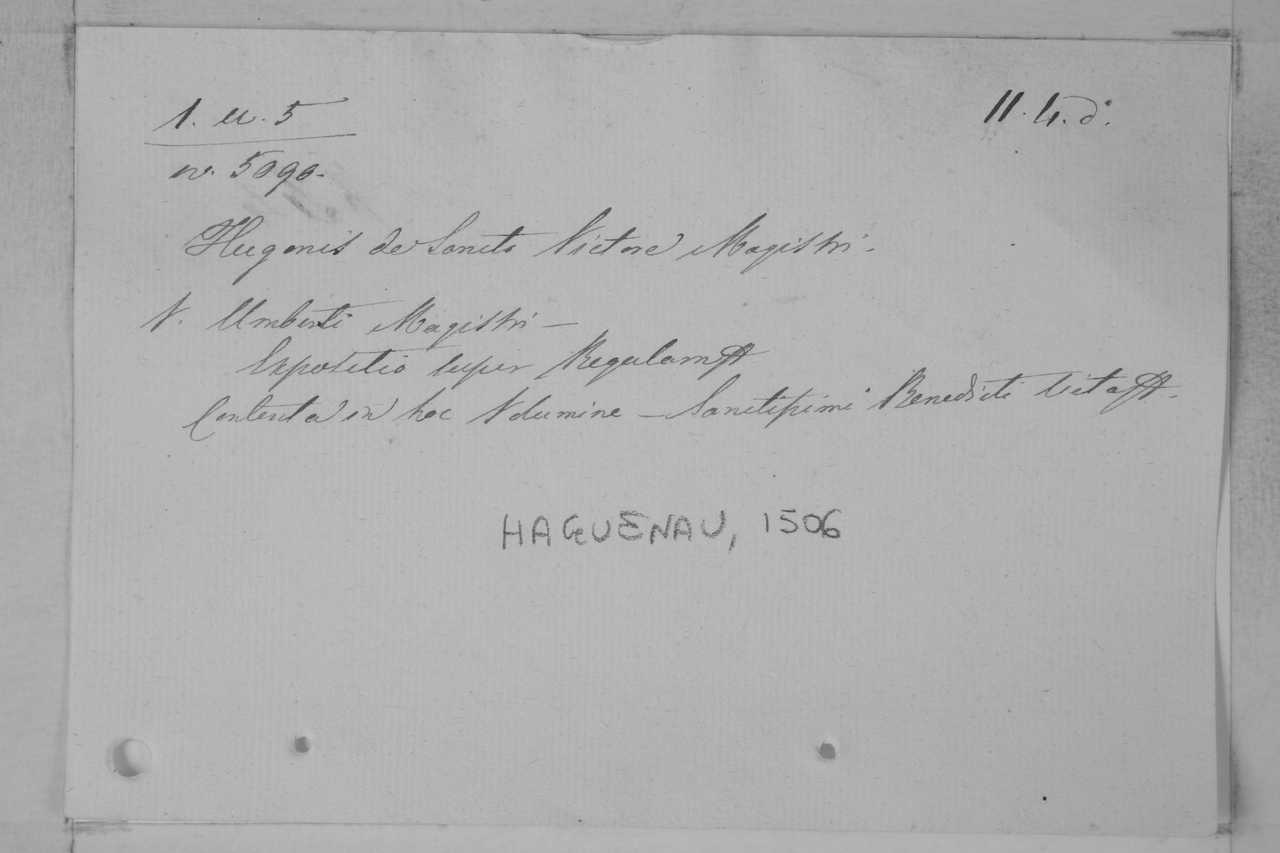 1. u. 5
11. 4. d.
nr. 5090.
Hugonis de Sancto Victore Magistri.
V. Umberti Magistri —
Expositio super Regulam
Contenta in hoc Volumine — Sanctissimi Benedicti vita
HAGUENAU, 1506